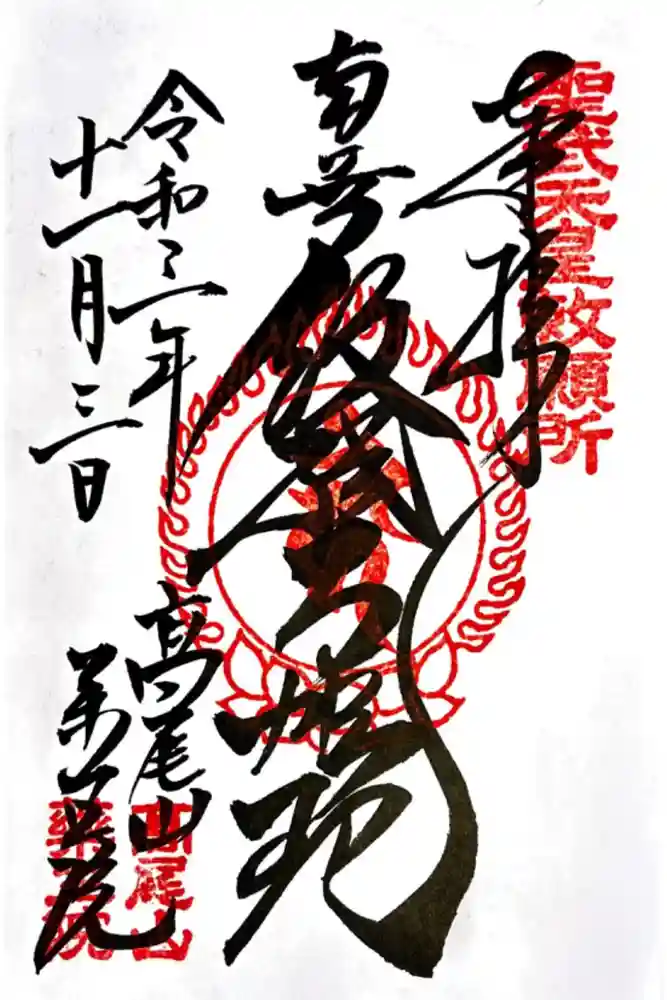 聖武天皇敕願所
奉拝
南無飯縄大権現
令和三年
十一月三日
高尾山
薬王院
高尾山
藥王院